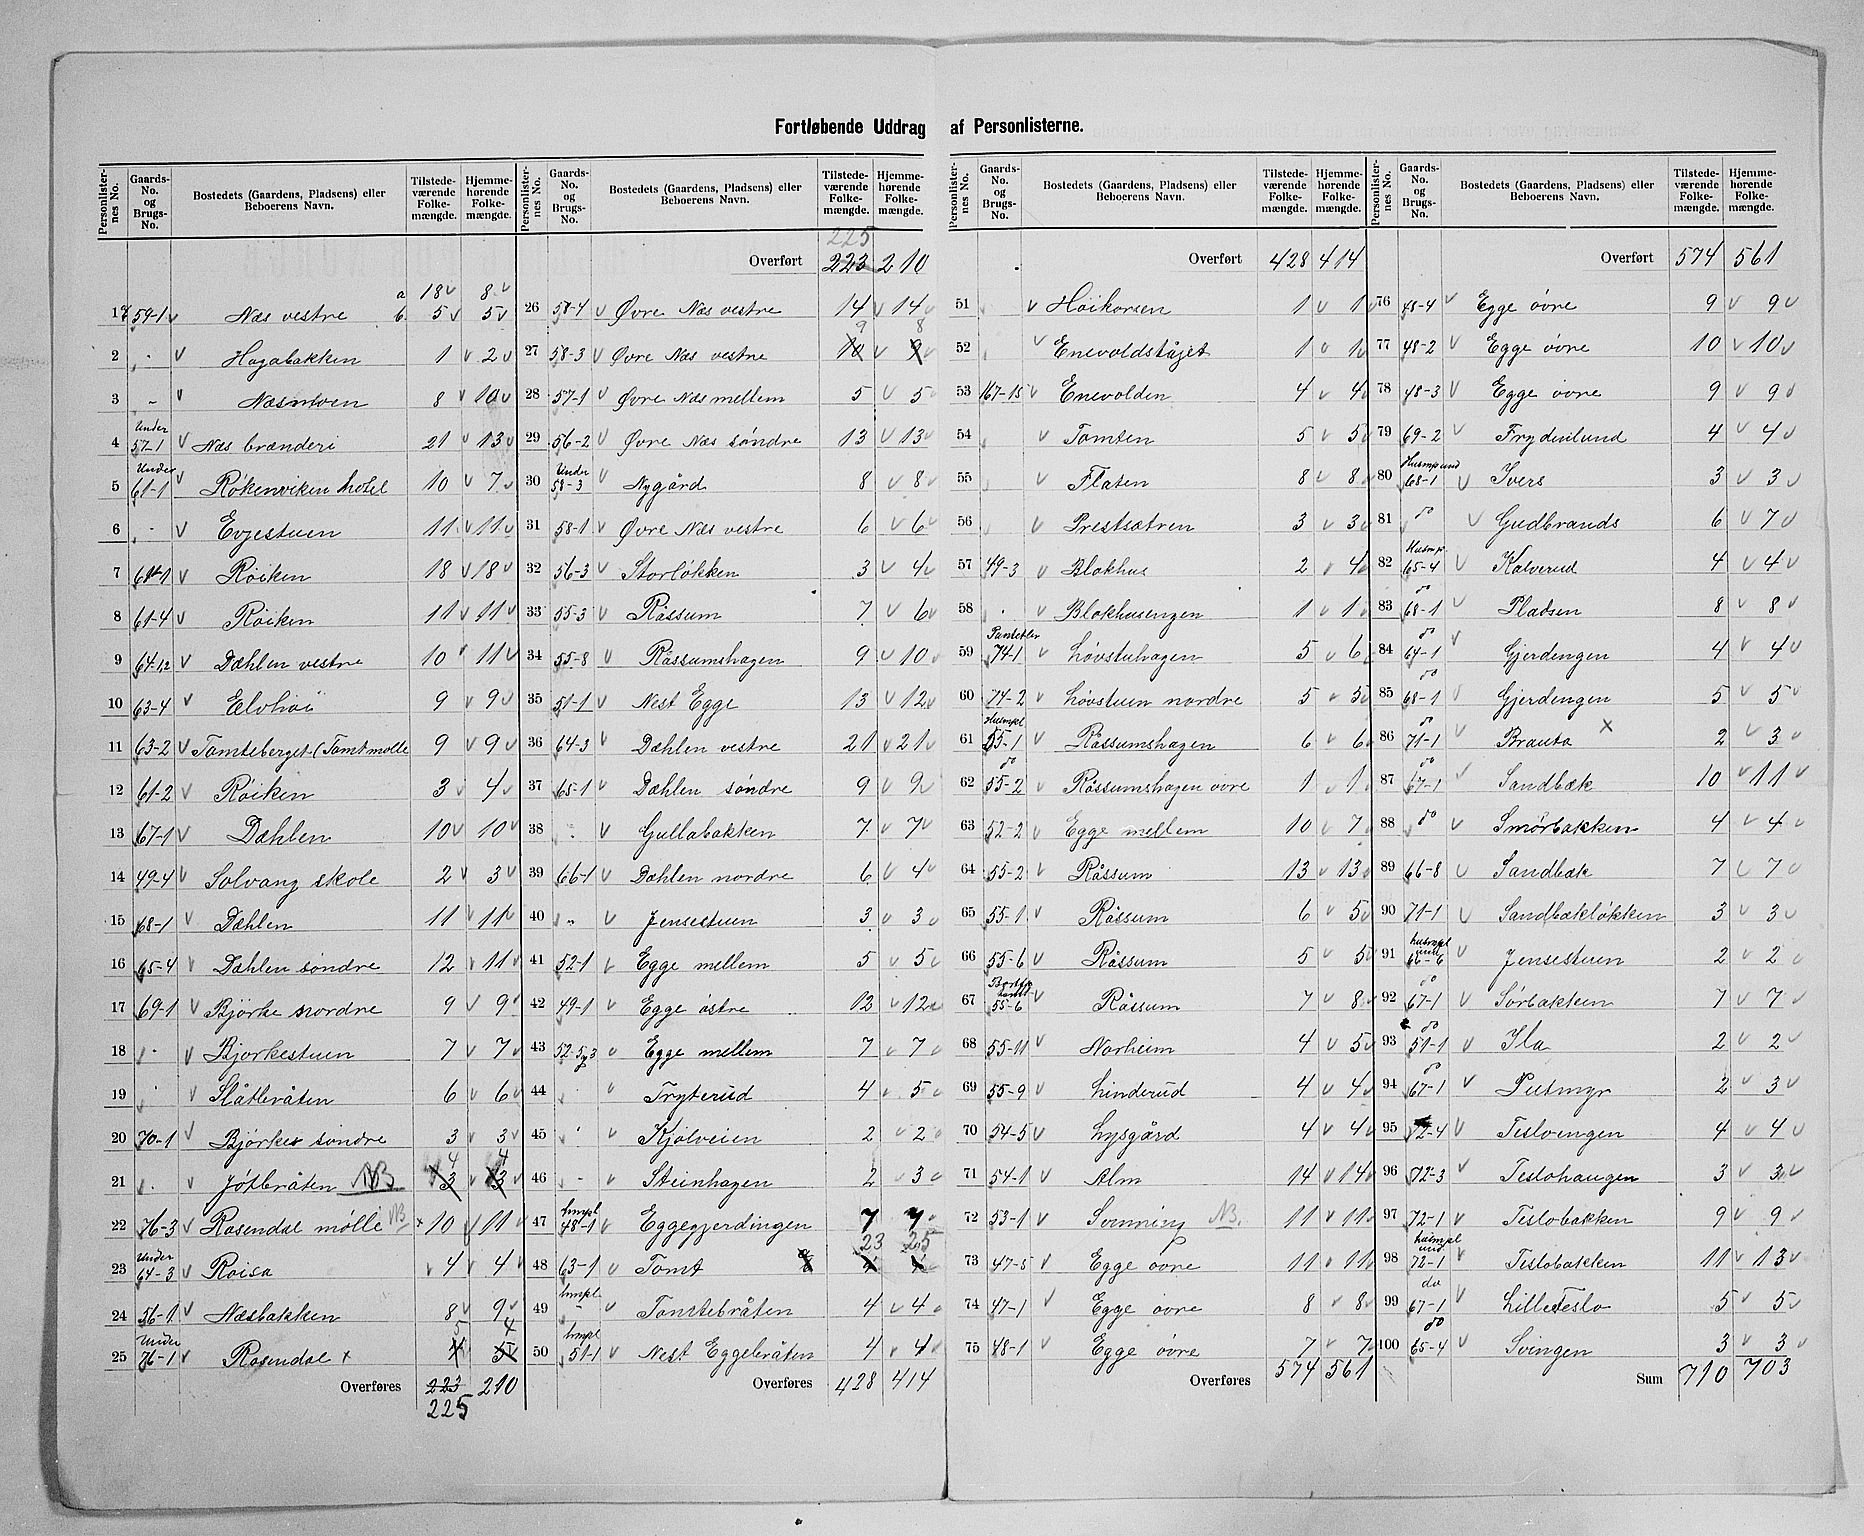 Fortløbende Uddrag af Personlisterne.
Personlisternes No. Gaards-No. og Brugs-No. Bostedets (Gaardens, Pladsens) eller Beboerens Navn. Tilstedeværende Folkemængde. Hjemmehørende Folkemængde.
a 18 8
1 59-1 Næs vestre b. 5 5
2 - Hagabakken 1 2
3 - Næsmoen 8 10
4 Under 57-1 Næs brænderi 21 13
5 Under 61-1 Røkenviken hotel 10 7
6 - Evjestuen 11 11
7 61-1 Røiken 18 18
8 61-4 Røiken 11 11
9 64-12 Dæhlen vestre 10 11
10 63-4 Elvhøi 9 9
11 63-2 Tomteberget (Tomtmølle 9 9
12 61-2 Røiken 3 4
13 67-1 Dæhlen 10 10
14 49-4 Solvang skole 2 3
15 68-1 Dæhlen 11 11
16 65-4 Dæhlen søndre 12 11
17 69-1 Bjørke nordre 9 9
18 - Bjørkestuen 7 7
19 - Slåtbråten 6 6
20 70-1 Bjørke søndre 3 3
21 - Jøtbråten NB 4 4
22 76-3 Rosendal mølle NB × 10 11
23 Under 64-3 Roisa 4 4
24 56-1 Næsbakken 8 9
25 Under 76-1 Rosendal × 5 4
Overføres 223 210
225
Personlisternes No. Gaards-No. og Brugs-No. Bostedets (Gaardens, Pladsens) eller Beboerens Navn. Tilstedeværende Folkemængde. Hjemmehørende Folkemængde.
225
Overført 223 210
26 58-4 Øvre Næs vestre 14 14
27 58-3 Øvre Næs vestre 10 9 9 8
28 57-1 Øvre Næs mellem 5 5
29 56-2 Øvre Næs søndre 13 13
30 Under 58-3 Nygård 8 8
31 58-1 Øvre Næs vestre 6 6
32 56-3 Storløkken 3 4
33 55-3 Råssum 7 6
34 55-8 Råssumshagen 9 10
35 51-1 Nest Egge 13 12
36 64-3 Dæhlen vestre 21 21
37 65-1 Dæhlen søndre 9 9
38 - Gullabakken 7 7
39 66-1 Dæhlen nordre 6 4
40 - Jensestuen 3 3
41 52-1 Egge mellem 5 5
42 49-1 Egge østre 12 12
43 52-5,3 Egge mellem 7 7
44 Tryterud 4 5
45 - Kjølveien 2 2
46 - Steinhagen 2 3
47 hmpl 48-1 Eggegjerdingen 7 7
48 63-1 Tomt 23 25
49 hmpl - Tomtebråten 4 4
50 hmpl 51-1 Nest Eggebråten 4 4
Overføres 428 414
Personlisternes No. Gaards-No. og Brugs-No. Bostedets (Gaardens, Pladsens) eller Beboerens Navn. Tilstedeværende Folkemængde. Hjemmehørende Folkemængde.
Overført 428 414
51 Høikorsen 1 1
52 Enevoldståjet 1 1
53 167-15 Enevolden 4 4
54 Tomten 5 5
55 Flaten 8 8
56 Prestsætren 3 3
57 49-3 Blokhus 2 4
58 - Blokhusengen 1 1
59 74-1 Løvstuhagen 5 6
60 74-2 Løvstuen nordre 5 5
61 Husmpl 55-1 Råssumshagen 6 6
62 do 55-2 Råssumshagen øvre 1 1
63 52-2 Egge mellem 10 7
64 55-2 Råssum 13 13
65 55-1 Råssum 6 5
66 55-6 Råssum 5 5
67 55-6 Råssum 7 8
68 55-11 Norheim 4 5
69 55-9 Linderud 4 4
70 54-5 Lysgård 4 4
71 54-1 Alm 14 14
72 53-1 Sønning NB. 11 11
73 47-5 Egge øvre 11 11
74 47-1 Egge øvre 8 8
75 48-1 Egge øvre 7 7
Overføres 574 561
Personlisternes No. Gaards-No. og Brugs-No. Bostedets (Gaardens, Pladsens) eller Beboerens Navn. Tilstedeværende Folkemængde. Hjemmehørende Folkemængde.
Overført 574 561
76 48-4 Egge øvre 9 9
77 48-2 Egge øvre 10 10
78 48-3 Egge øvre 9 9
79 69-2 Frydenlund 4 4
80 Husmp und 68-1 Ivers 3 3
81 do Gudbrands 6 7
82 Husmp. 65-4 Kalverud 4 4
83 do 68-1 Pladsen 8 8
84 do 64-1 Gjerdengen 4 4
85 do 68-1 Gjerdengen 5 5
86 do 71-1 Brauta × 2 3
87 do 67-1 Sandbæk 10 11
88 do Smörbakken 4 4
89 66-8 Sandbæk 7 7
90 71-1 Sandbækløkken 3 3
91 husmpl und 66-6 Jensestuen 2 2
92 do 67-1 Sørbakken 7 7
93 do 51-1 Ila 2 2
94 do 67-1 Putmyr 2 3
95 72-4 Tesloengen 4 4
96 72-3 Teslohaugen 3 3
97 72-1 Teslobakken 9 9
98 husmpl und. 72-1 Teslobakken 11 13
99 do 67-1 Lille Teslo 5 5
100 do 65-4 Svingen 3 3
Sum 710 703